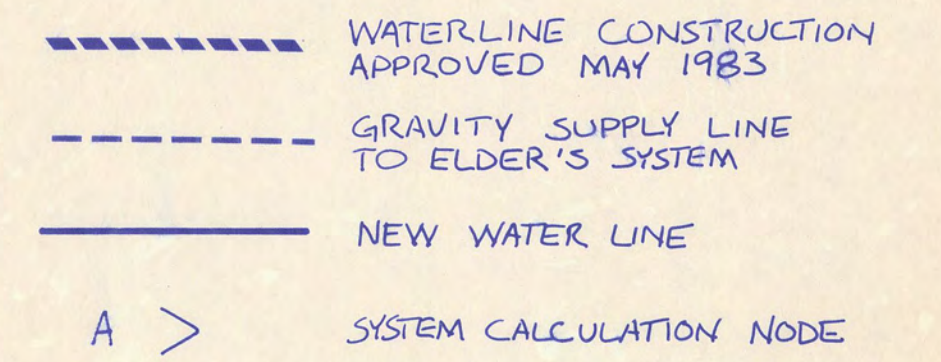 WATERLINE CONSTRUCTION
APPROVED MAY 1983
GRAVITY SUPPLY LINE
TO ELDER'S SYSTEM
NEW WATER LINE
A > SYSTEM CALCULATION NODE